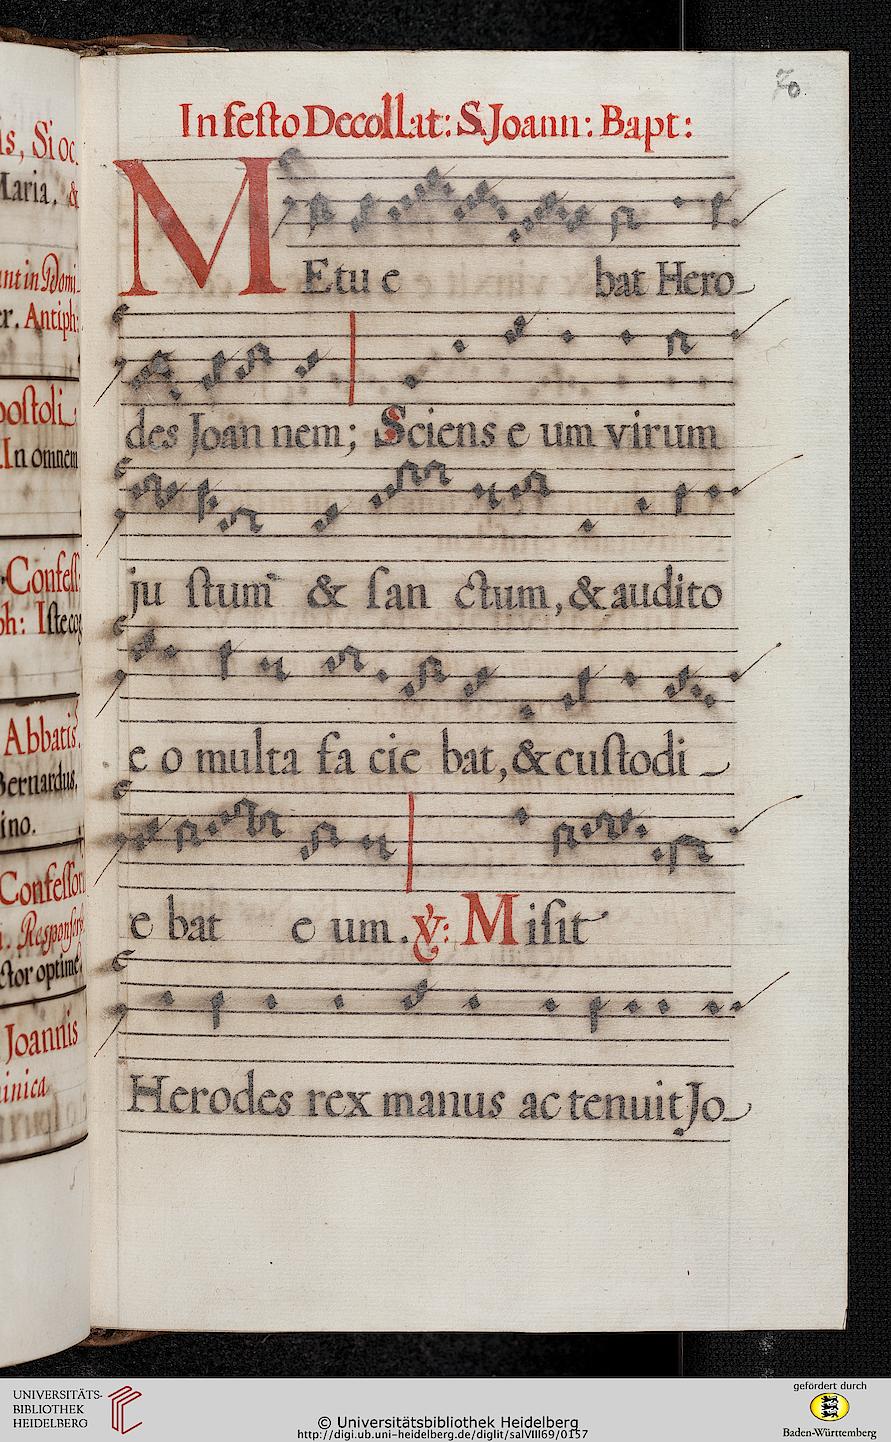 is, Si oc.
Maria. &
unt in Domi-
er. Antiph:
postoli
In omnem
Confess:
ph: Iste cog
Abbatis.
Bernardus.
ino.
Confessori
Responsori
ctor optime
Joannis
inica
70
In festo Decollat: S. Joann: Bapt:
MEtu e bat Hero-
des Joan nem; Sciens e um virum
ju stum & san ctum, & audito
e o multa fa cie bat, & custodi -
e bat e um. ℣: Misit
Herodes rex manus ac tenuit Jo-
UNIVERSITÄTS-
BIBLIOTHEK
HEIDELBERG
© Universitätsbibliothek Heidelberg
http://digi.ub.uni-heidelberg.de/diglit/salVIII69/0157
gefördert durch
Baden-Württemberg